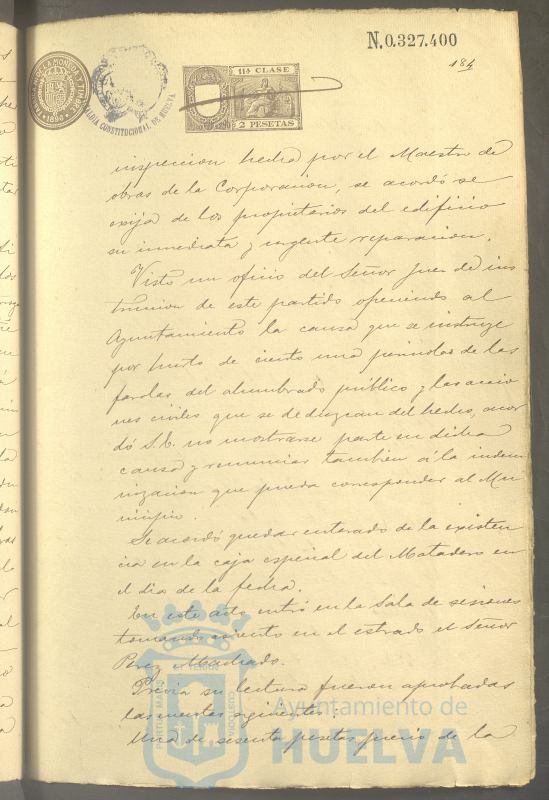 N.0.327.400
184
11ª CLASE
2 PESETAS
1890
ALDIA CONSTITUCIONAL DE HUELVA
inspeccion hecha por el Maestro de
obras de la Corporacion, se acordó se
exija de los propietarios del edificio
su inmediata y urgente reparacion.
Visto un oficio del Señor Juez de ins-
truccion de este partido ofreciendo al
Ayuntamiento la causa que se instruye
por hurto de ciento una de las
farolas del alumbrado público y las accio
nes civiles que se deduzcan del hecho, acor
dó S.E. no mostrarse parte en dicha
causa y renunciar tambien á la indem
nizacion que pueda corresponder al Mu
nicipio.
Se acordó quedar enterado de la existen
cia en la caja especial del Matadero en
el dia de la fecha.
En este acto entró en la Sala de sesiones
tomando asiento en el estrado el Señor
Perez Machado.
Prévia su lectura fueron aprobadas
las cuentas siguientes:
Una de sesenta pesetas precio de la
Ayuntamiento de
HUELVA